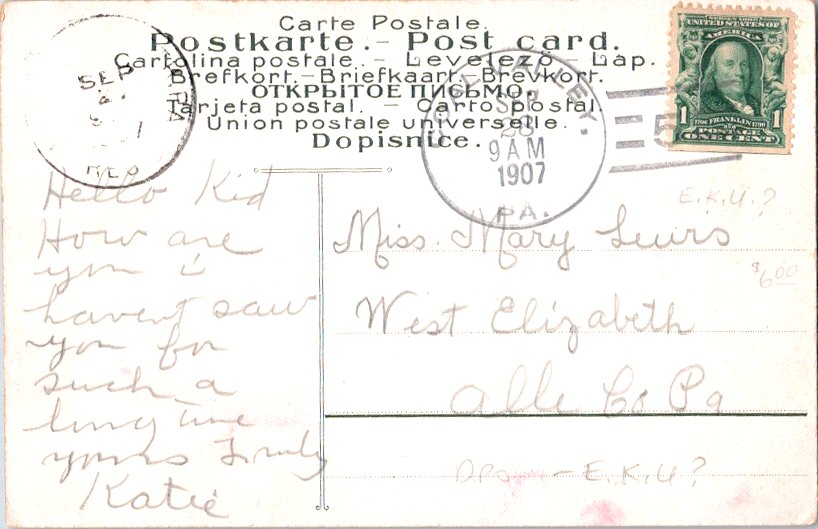 Carte Postale.
Postkarte. - Post card.
Cartolina postale. - Levelező - Lap.
Brefkort. - Briefkaart. Brevkort.
ОТКРЫТОЕ ПИСЬМО.
Tarjeta postal. - Cartao postal.
Union postale universelle.
Dopisnice.
SEP
REC
SEP
23
9 AM
1907
PA.
SERIES 1902
UNITED STATES OF
AMERICA
1 FRANKLIN 1
POSTAGE
ONE CENT
5
Hello Kid
How are
you i
havent saw
you for
such a
long time
yours Truly
Katie
E.K.U.?
Miss. Mary Lewis
$6.00
West Elizabeth
Alle Co Pa
- E.K.U?